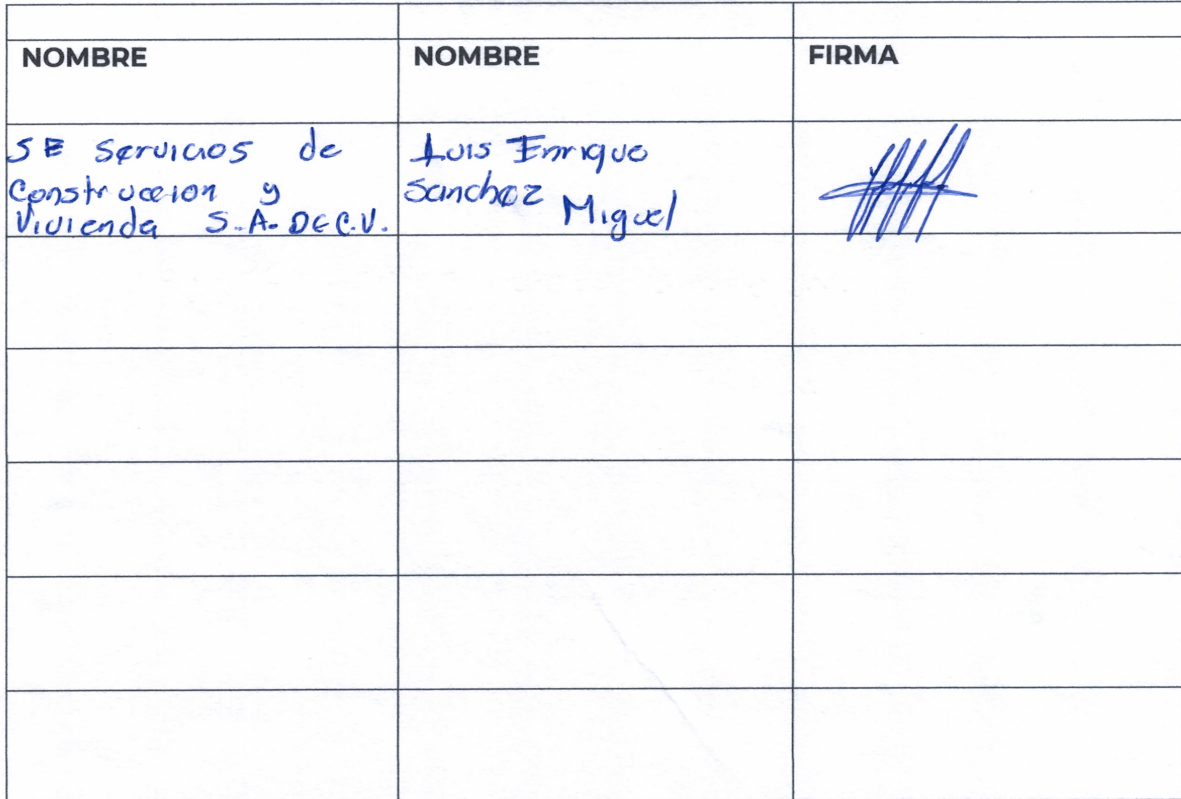 NOMBRE NOMBRE FIRMA
SE Servicios de
Construccion y
Vivienda S.A. DE C.V.
Luis Enrique
Sanchez Miguel